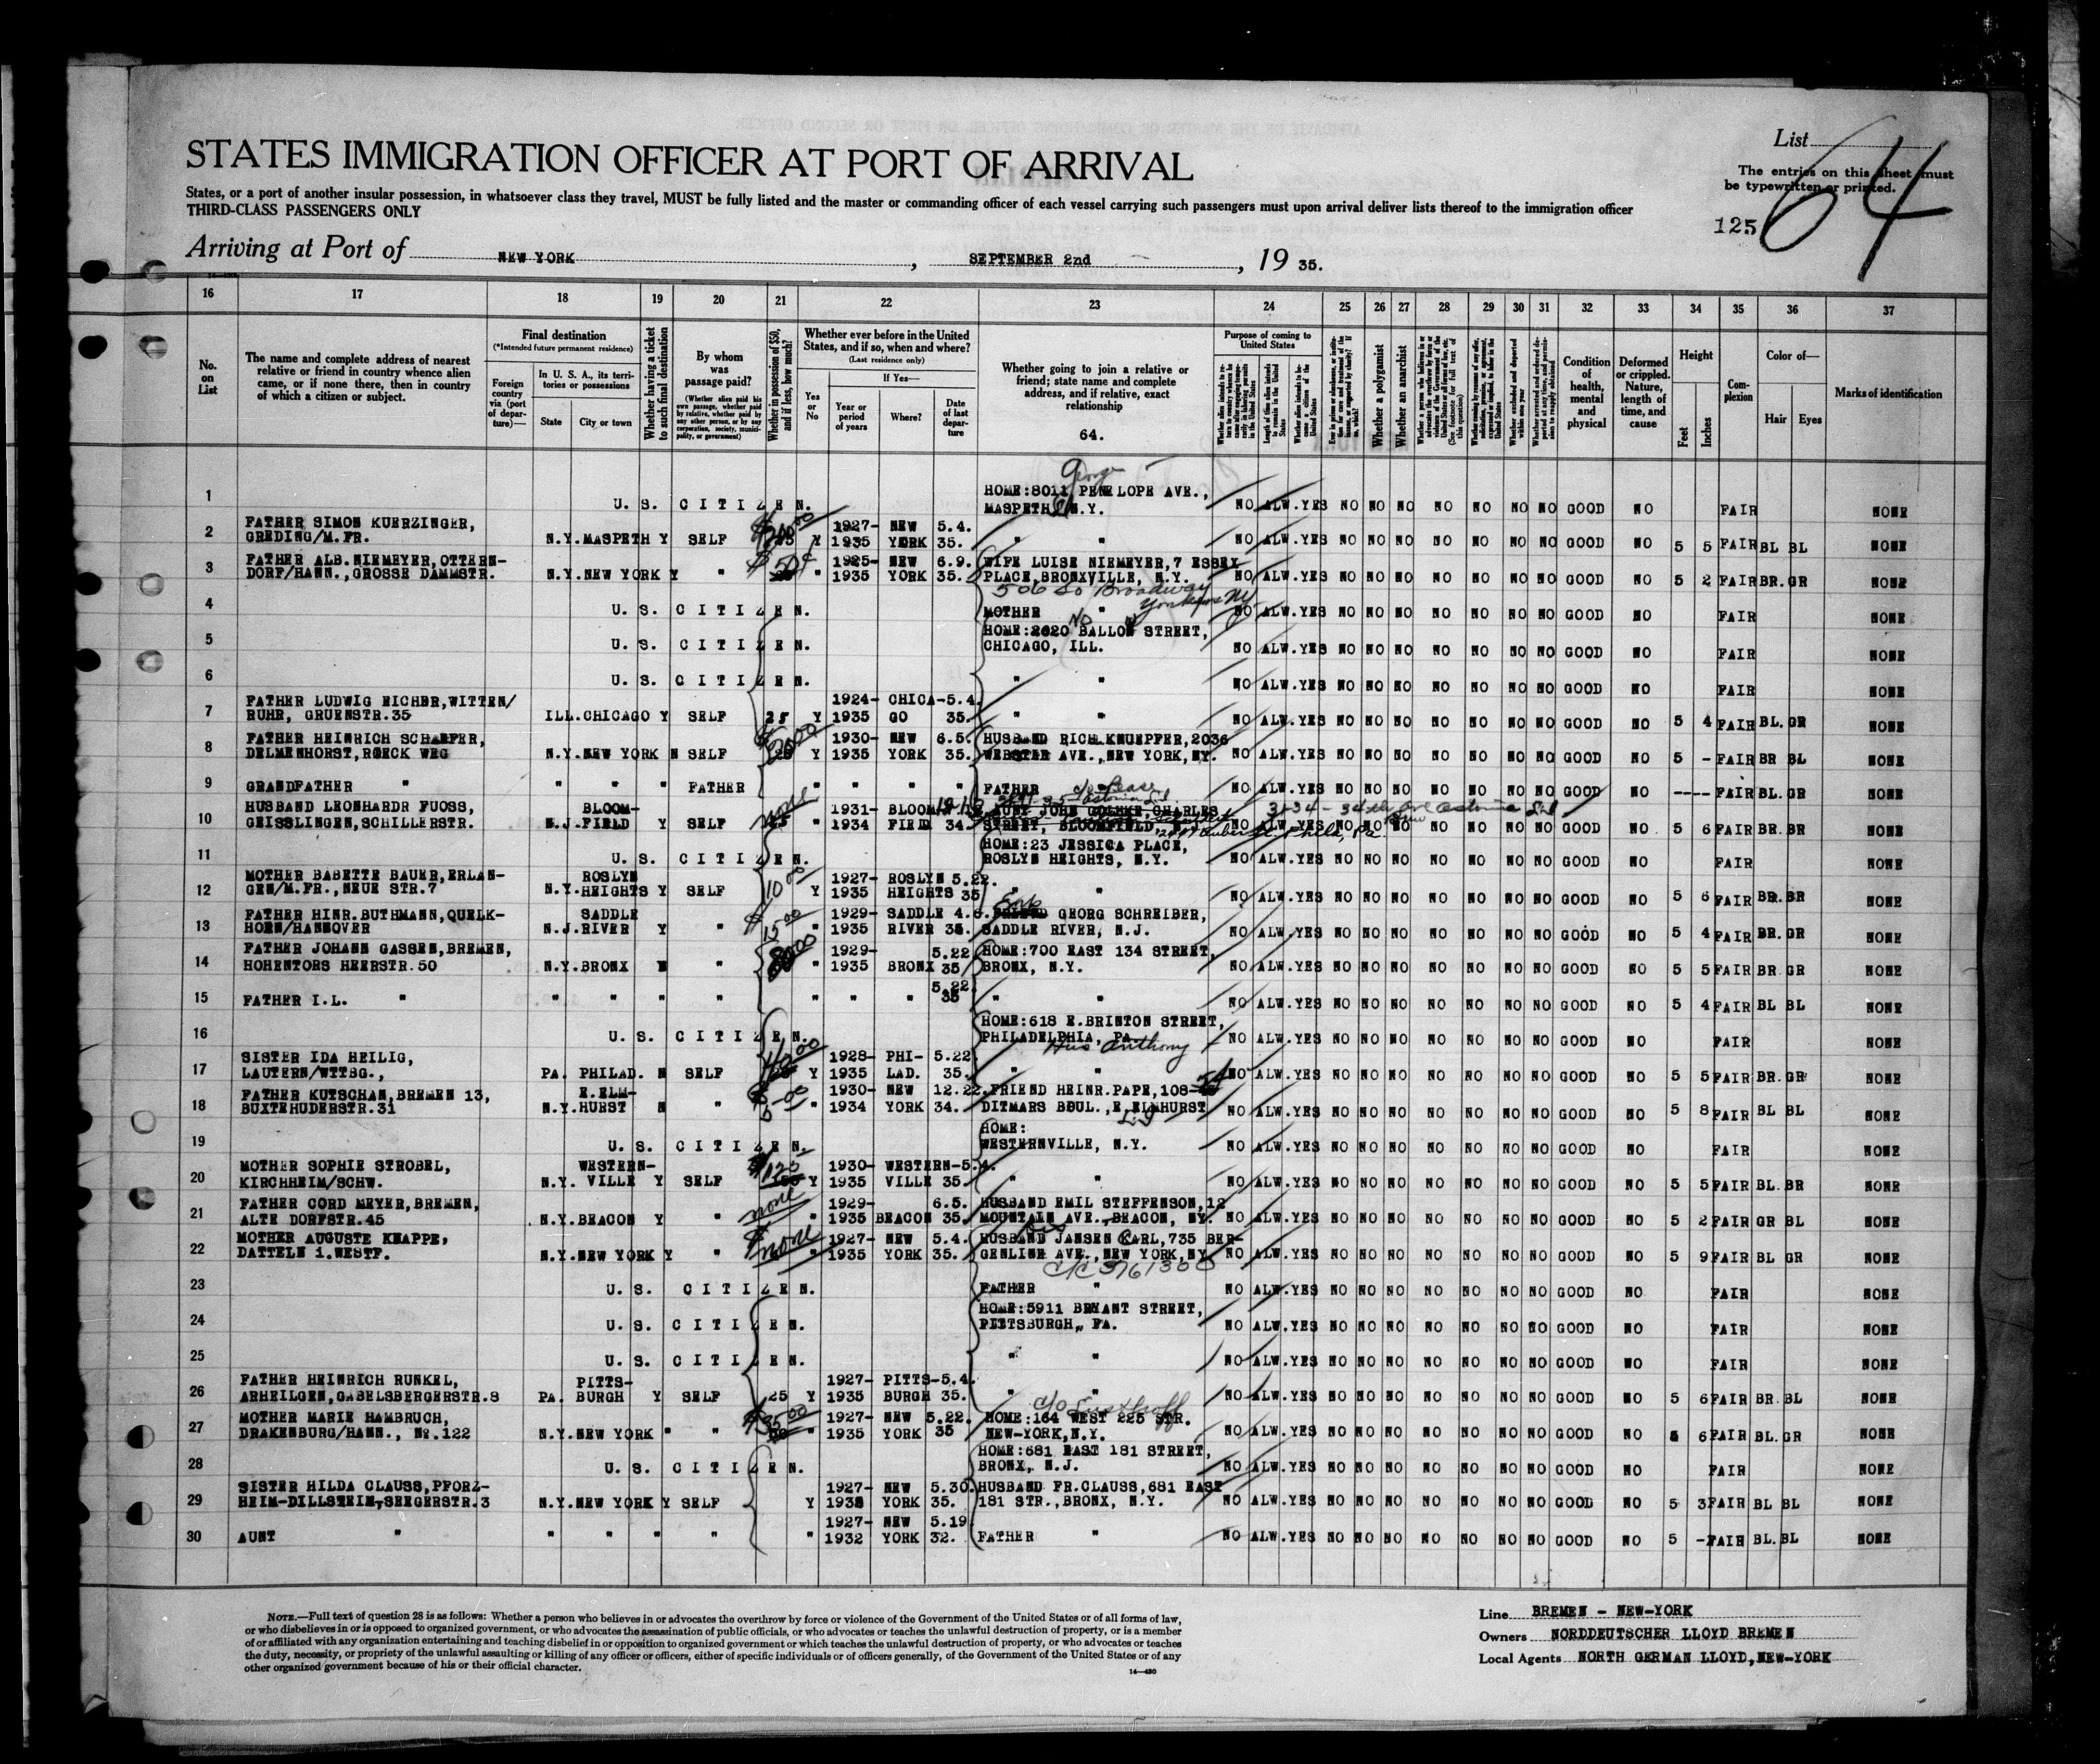 STATES IMMIGRATION OFFICER AT PORT OF ARRIVAL
States, or a port of another insular possession, in whatsoever class they travel, MUST be fully listed and the master or commanding officer of each vessel carrying such passengers must upon arrival deliver lists thereof to the immigration officer
THIRD-CLASS PASSENGERS ONLY
List 64
The entries on this sheet must
be typewritten or printed.
125
Arriving at Port of NEW YORK, SEPTEMBER 2nd, 19 35.
16 17 18 19 20 21 22 23 24 25 26 27 28 29 30 31 32 33 34 35 36 37
No. on List
The name and complete address of nearest relative or friend in country whence alien came, or if none there, then in country of which a citizen or subject.
Final destination
(*Intended future permanent residence)
Foreign country via (port of departure)—
In U. S. A., its territories or possessions
State City or town
Whether having a ticket to such final destination
By whom was passage paid?
(Whether alien paid his own passage, whether paid by relative, whether paid by any other person, or by any corporation, society, municipality, or government)
Whether in possession of $50, and if less, how much?
Whether ever before in the United States, and if so, when and where?
(Last residence only)
Yes or No
If Yes—
Year or period of years
Where?
Date of last departure
Whether going to join a relative or friend; state name and complete address, and if relative, exact relationship
64.
Purpose of coming to United States
Whether a polygamist
Whether an anarchist
Condition of health, mental and physical
Deformed or crippled. Nature, length of time, and cause
Height
Feet Inches
Complexion
Color of—
Hair Eyes
Marks of identification
George
1 U. S. CITIZEN. HOME:8011 PENELOPE AVE., MASPETH N.Y. NO ALW. YES NO NO NO NO NO NO NO GOOD NO FAIR NONE
2 FATHER SIMON KUERZINGER, GREDING/M.FR. N.Y. MASPETH Y SELF $200.00 Y 1927-1935 NEW YORK 5.4.35. " " NO ALW. YES NO NO NO NO NO NO NO GOOD NO 5 5 FAIR BL BL NONE
3 FATHER ALB.NIEMEYER, OTTERNDORF/HANN., GROSSE DAMMSTR. N.Y. NEW YORK Y " $50 " 1925-1935 NEW YORK 6.9.35. WIFE LUISE NIEMEYER, 7 ESSEX PLACE, BRONXVILLE, N.Y. NO ALW. YES NO NO NO NO NO NO NO GOOD NO 5 2 FAIR BR. GR NONE
506 So Broadway Yonkers NY
4 U. S. CITIZEN. MOTHER " NO ALW. YES NO NO NO NO NO NO NO GOOD NO FAIR NONE
5 U. S. CITIZEN. HOME:2620 No BALLOU STREET, CHICAGO, ILL. NO ALW. YES NO NO NO NO NO NO NO GOOD NO FAIR NONE
6 U. S. CITIZEN. " " NO ALW. YES NO NO NO NO NO NO NO GOOD NO FAIR NONE
7 FATHER LUDWIG EICHER, WITTEN/RUHR, GRUENSTR.35 ILL. CHICAGO Y SELF 25 Y 1924-1935 CHICAGO 5.4.35. " " NO ALW. YES NO NO NO NO NO NO NO GOOD NO 5 4 FAIR BL. GR NONE
8 FATHER HEINRICH SCHAEFER, DELMENHORST, ROECK WEG N.Y. NEW YORK N SELF 20.00 Y 1930-1935 NEW YORK 6.5.35. HUSBAND RICH.KNUEPFER, 2036 WEBSTER AVE., NEW YORK, NY. NO ALW. YES NO NO NO NO NO NO NO GOOD NO 5 - FAIR BR BL NONE
9 GRANDFATHER " " " " FATHER " " " " FATHER NO ALW. YES NO NO NO NO NO NO NO GOOD NO ---- FAIR BL. GR NONE
10 HUSBAND LEONHARDR FUOSS, GEISSLINGEN, SCHILLERSTR. N.J. BLOOMFIELD Y SELF none Y 1931-1934 BLOOMFIELD 34. AUNT JOHN CHARLES STREET, BLOOMFIELD, NO ALW. YES NO NO NO NO NO NO NO GOOD NO 5 6 FAIR BR. BR NONE
11 U. S. CITIZEN. HOME:23 JESSICA PLACE, ROSLYN HEIGHTS, N.Y. NO ALW. YES NO NO NO NO NO NO NO GOOD NO FAIR NONE
12 MOTHER BABETTE BAUER, ERLANGEN/M.FR., NEUE STR.7 N.Y. ROSLYN HEIGHTS Y SELF 10.00 Y 1927-1935 ROSLYN HEIGHTS 5.22.35 " " NO ALW. YES NO NO NO NO NO NO NO GOOD NO 5 6 FAIR BR. BR NONE
13 FATHER HINR.BUTHMANN, QUELKHORN/HANNOVER N.J. SADDLE RIVER Y " $15.00 " 1929-1935 SADDLE RIVER 4.8.35. FRIEND GEORG SCHREIBER, SADDLE RIVER, N.J. NO ALW. YES NO NO NO NO NO NO NO GOOD NO 5 4 FAIR BR. GR NONE
14 FATHER JOHANN GASSEN, BREMEN, HOHENTORS HEERSTR.50 N.Y. BRONX N " 80.00 " 1929-1935 BRONX 5.22.35 HOME:700 EAST 134 STREET, BRONX, N.Y. NO ALW. YES NO NO NO NO NO NO NO GOOD NO 5 5 FAIR BR. GR NONE
15 FATHER I.L. " " " " " " " " 5.22.35 " " NO ALW. YES NO NO NO NO NO NO NO GOOD NO 5 4 FAIR BL BL NONE
16 U. S. CITIZEN. HOME:618 E.BRINTON STREET, PHILADELPHIA, PA. NO ALW. YES NO NO NO NO NO NO NO GOOD NO FAIR NONE
Hus Anthony
17 SISTER IDA HEILIG, LAUTERN/WTTBG., PA. PHILAD. N SELF Y 1928-1935 PHI-LAD. 5.22.35. " " NO ALW. YES NO NO NO NO NO NO NO GOOD NO 5 5 FAIR BR. GR NONE
18 FATHER KUTSCHAN, BREMEN 13, BUXTEHUDERSTR.31 N.Y. E.ELMHURST N " $5.00 " 1930-1934 NEW YORK 12.22.34. FRIEND HEINR.PAPE, 108-54 DITMARS BOUL., E.ELMHURST L.I NO ALW. YES NO NO NO NO NO NO NO GOOD NO 5 8 FAIR BL BL NONE
19 U. S. CITIZEN. HOME: WESTERNVILLE, N.Y. NO ALW. YES NO NO NO NO NO NO NO GOOD NO FAIR NONE
20 MOTHER SOPHIE STROBEL, KIRCHHEIM/SCHW. N.Y. WESTERNVILLE Y SELF $125 Y 1930-1935 WESTERNVILLE 5.4.35. " " NO ALW. YES NO NO NO NO NO NO NO GOOD NO 5 5 FAIR BL. BR NONE
21 FATHER CORD MEYER, BREMEN, ALTE DORFSTR.45 N.Y. BEACON Y " none " 1929-1935 BEACON 6.5.35. HUSBAND EMIL STEFFENSON, 12 MOUNTAIN AVE., BEACON, NY. NO ALW. YES NO NO NO NO NO NO NO GOOD NO 5 2 FAIR GR BL NONE
22 MOTHER AUGUSTE KNAPPE, DATTELN i.WESTF. N.Y. NEW YORK Y " none " 1927-1935 NEW YORK 5.4.35. HUSBAND JANSEN KARL, 735 BERGENLINE AVE., NEW YORK, NY. NO ALW. YES NO NO NO NO NO NO NO GOOD NO 5 9 FAIR BL GR NONE
C/C 3761300
23 U. S. CITIZEN. FATHER " NO ALW. YES NO NO NO NO NO NO NO GOOD NO FAIR NONE
24 U. S. CITIZEN. HOME:5911 BRYANT STREET, PITTSBURGH, PA. NO ALW. YES NO NO NO NO NO NO NO GOOD NO FAIR NONE
25 U. S. CITIZEN. " " NO ALW. YES NO NO NO NO NO NO NO GOOD NO FAIR NONE
26 FATHER HEINRICH RUNKEL, ARHEILGEN, GABELSBERGERSTR.8 PA. PITTSBURGH Y SELF 25 Y 1927-1935 PITTSBURGH 5.4.35. " " NO ALW. YES NO NO NO NO NO NO NO GOOD NO 5 6 FAIR BR. BL NONE
27 MOTHER MARIE HAMBRUCH, DRAKENBURG/HANN., No.122 N.Y. NEW YORK " " $35.00 " 1927-1935 NEW YORK 5.22.35 HOME:164 WEST 225 STR. NEW-YORK, N.Y. NO ALW. YES NO NO NO NO NO NO NO GOOD NO 5 6 FAIR BL. GR NONE
28 U. S. CITIZEN. HOME:681 EAST 181 STREET, BRONX, N.J. NO ALW. YES NO NO NO NO NO NO NO GOOD NO FAIR NONE
29 SISTER HILDA CLAUSS, PFORZHEIM-DILLSTEIN, SEEGERSTR.3 N.Y. NEW YORK Y SELF Y 1927-1935 NEW YORK 5.30.35. HUSBAND FR.CLAUSS, 681 EAST 181 STR., BRONX, N.Y. NO ALW. YES NO NO NO NO NO NO NO GOOD NO 5 3 FAIR BL BL NONE
30 AUNT " " " " " " 1927-1932 NEW YORK 5.19.32. FATHER " NO ALW. YES NO NO NO NO NO NO NO GOOD NO 5 - FAIR BL. BL NONE
NOTE.—Full text of question 28 is as follows: Whether a person who believes in or advocates the overthrow by force or violence of the Government of the United States or of all forms of law,
or who disbelieves in or is opposed to organized government, or who advocates the assassination of public officials, or who advocates or teaches the unlawful destruction of property, or is a member
of or affiliated with any organization entertaining and teaching disbelief in or opposition to organized government or which teaches the unlawful destruction of property, or who advocates or teaches
the duty, necessity, or propriety of the unlawful assaulting or killing of any officer or officers, either of specific individuals or of officers generally, of the Government of the United States or of any
other organized government because of his or their official character.
14—430
Line BREMEN - NEW-YORK
Owners NORDDEUTSCHER LLOYD BREMEN
Local Agents NORTH GERMAN LLOYD, NEW-YORK